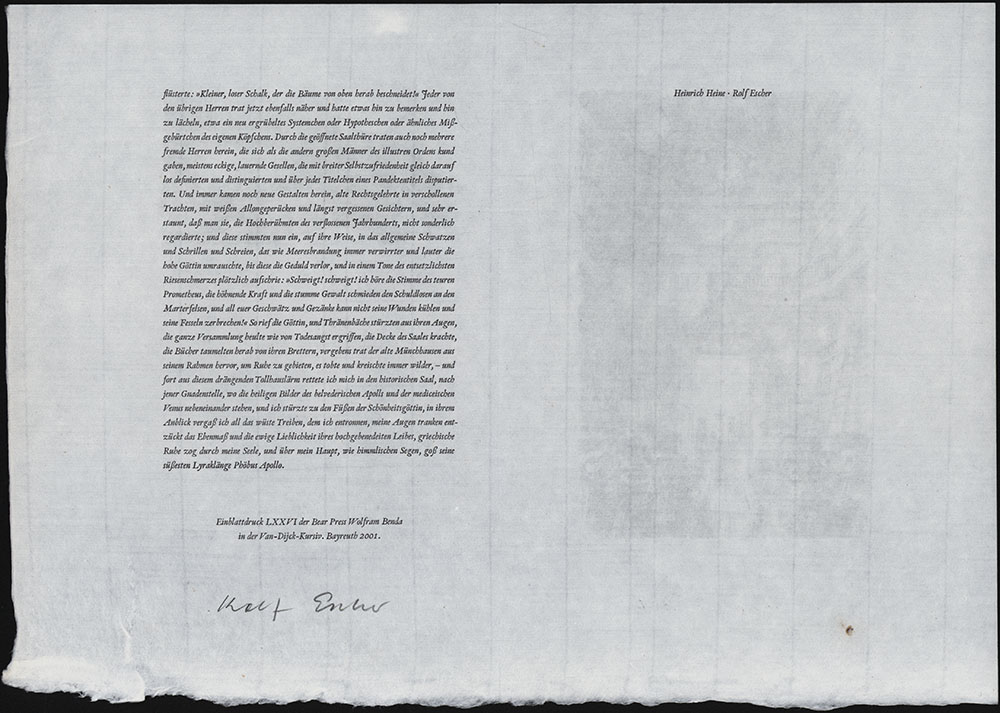 flüsterte: »Kleiner, loser Schalk, der die Bäume von oben herab beschneidet!« Jeder von
den übrigen Herren trat jetzt ebenfalls näher und hatte etwas hin zu bemerken und hin
zu lächeln, etwa ein neu ergrübeltes Systemchen oder Hypotheschen oder ähnliches Miß-
gebürtchen des eigenen Köpfchens. Durch die geöffnete Saalthüre traten auch noch mehrere
fremde Herren herein, die sich als die andern großen Männer des illustren Ordens kund
gaben, meistens eckige, lauernde Gesellen, die mit breiter Selbstzufriedenheit gleich darauf
los definierten und distinguierten und über jedes Titelchen eines Pandektentitels disputier-
ten. Und immer kamen noch neue Gestalten herein, alte Rechtsgelehrte in verschollenen
Trachten, mit weißen Allongeperücken und längst vergessenen Gesichtern, und sehr er-
staunt, daß man sie, die Hochberühmten des verflossenen Jahrhunderts, nicht sonderlich
regardierte; und diese stimmten nun ein, auf ihre Weise, in das allgemeine Schwatzen
und Schrillen und Schreien, das wie Meeresbrandung immer verwirrter und lauter die
hohe Göttin umrauschte, bis diese die Geduld verlor, und in einem Tone des entsetzlichsten
Riesenschmerzes plötzlich aufschrie: »Schweigt! schweigt! ich höre die Stimme des teuren
Prometheus, die höhnende Kraft und die stumme Gewalt schmieden den Schuldlosen an den
Marterfelsen, und all euer Geschwätz und Gezänke kann nicht seine Wunden kühlen und
seine Fesseln zerbrechen!« So rief die Göttin, und Thränenbäche stürzten aus ihren Augen,
die ganze Versammlung heulte wie von Todesangst ergriffen, die Decke des Saales krachte,
die Bücher taumelten herab von ihren Brettern, vergebens trat der alte Münchhausen aus
seinem Rahmen hervor, um Ruhe zu gebieten, es tobte und kreischte immer wilder, – und
fort aus diesem drängenden Tollhauslärm rettete ich mich in den historischen Saal, nach
jener Gnadenstelle, wo die heiligen Bilder des belvederischen Apolls und der mediceischen
Venus nebeneinander stehen, und ich stürzte zu den Füßen der Schönheitsgöttin, in ihrem
Anblick vergaß ich all das wüste Treiben, dem ich entronnen, meine Augen tranken ent-
zückt das Ebenmaß und die ewige Lieblichkeit ihres hochgebenedeiten Leibes, griechische
Ruhe zog durch meine Seele, und über mein Haupt, wie himmlischen Segen, goß seine
süßesten Lyraklänge Phöbus Apollo.
Einblattdruck LXXVI der Bear Press Wolfram Benda
in der Van-Dijck-Kursiv. Bayreuth 2001.
Rolf Escher
Heinrich Heine · Rolf Escher